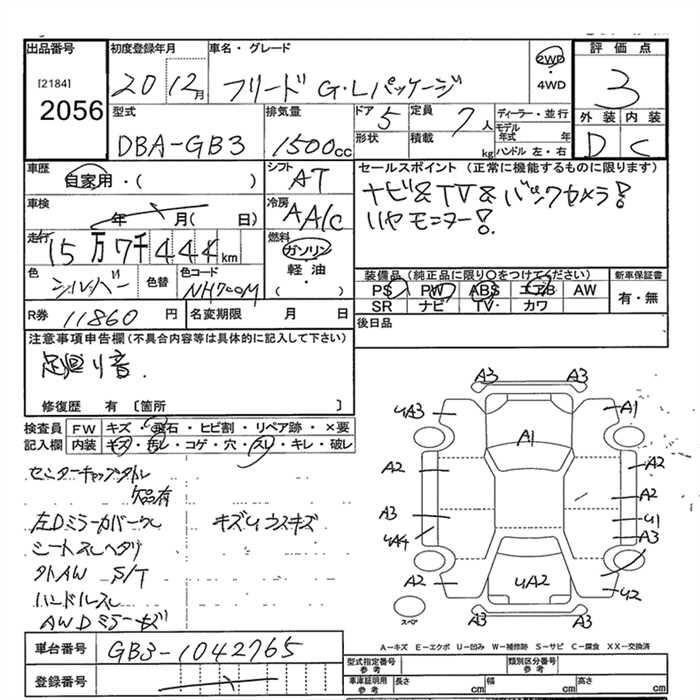 出品番号
[2184]
2056
初度登録年月
20 12月
車名・グレード
フリード G・Lパッケージ
2WD
・
4WD
評価点
3
外装 内装
D C
型式
DBA-GB3
排気量
1500cc
ドア 5
形状
定員 7人
積載 kg
ディーラー・並行
モデル年式 年
ハンドル 左・右
車歴
自家用・( )
シフト
AT
セールスポイント(正常に機能するものに限ります)
ナビ&TV&バックカメラ!
リヤモニター!
車検
年 月( 日)
冷房
AA/C
走行
15万7千444km
燃料
ガソリン
軽油・
( )
色
シルバー
色替
色コード
NH700M
装備品(純正品に限り○をつけてください)
PS PW ABS エアB AW
SR ナビ TV・ カワ
新車保証書
有・無
R券 11860円
名変期限 月 日
後日品
注意事項申告欄(不具合内容等は具体的に記入して下さい)
足廻り音.
修復歴 有 〔箇所 〕
検査員記入欄
FW キズ・飛石・ヒビ割・リペア跡・×要
内装 キズ・汚レ・コゲ・穴・スレ・キレ・破レ
センターキャップ
欠品有
左Dミラーカバー
キズU ウスキズ
シートスレヘタリ
外AW S/T
ハンドルスレ
AWDミラーキズ
A3 A3
UA3 A1
A1
A2 A3
A2
A3 U1
UA4 A3
A2 UA2 U2
スペア
A3 A3
A-キズ E-エクボ U-凹み W-補修跡 S-サビ C-腐食 XX-交換済
車台番号
GB3-1042765
登録番号
型式指定番号
参考
類別区分番号
参考
車庫証明用
参考
長さ cm
幅 cm
高さ cm